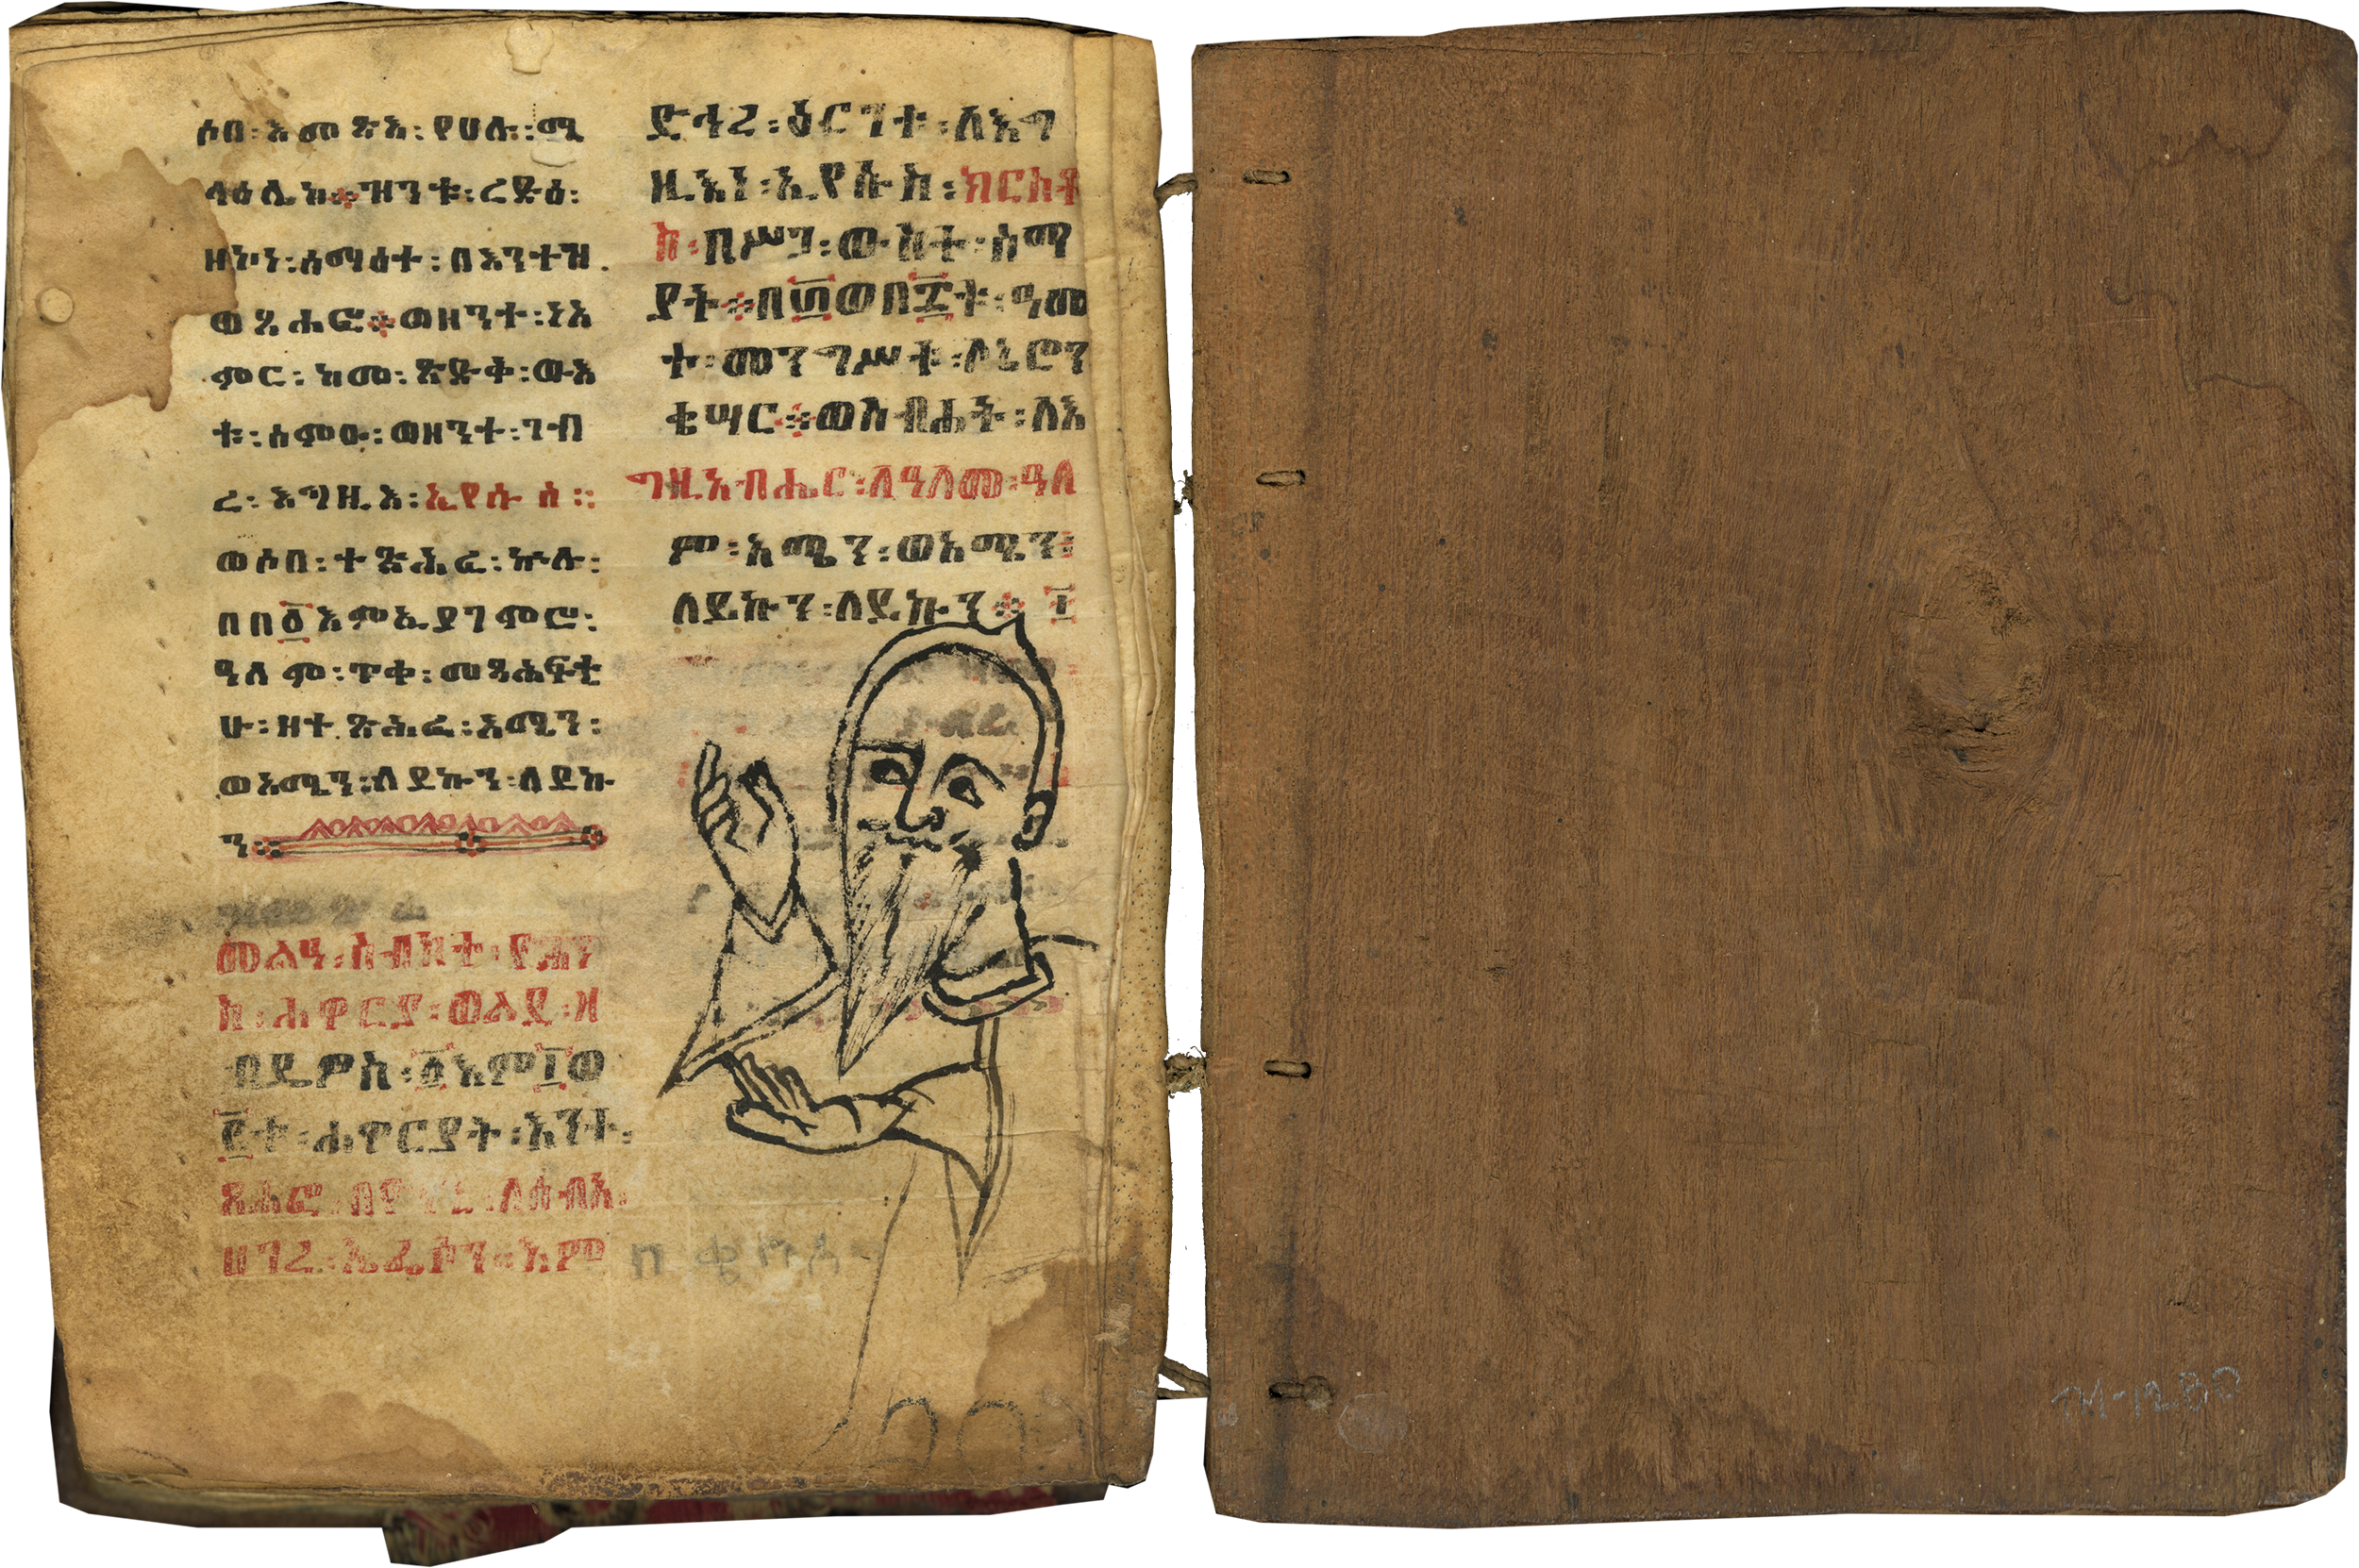 ሶበ፡ እመጽአ፡ የሀሉ፡ ሚ
ላዕሌክ፡ ዝንቱ፡ ረድዕ፡
ዘኮነ፡ ሰማዕተ፡ በእንተዝ
ወጸሐፎ፡ ወዘንተ፡ ነአ
ምር፡ ከመ፡ ጽድቅ፡ ውእ
ቱ፡ ስምዑ፡ ወዘንተ፡ ገብ
ረ፡ እግዚእ፡ ኢየሱስ፡፡
ወሶበ፡ ተጽሕፈ፡ ኵሉ፡
በበ፩እምኢያገምሮ፡
ዓለም፡ ጥቀ፡ መጻሕፍቲ
ሁ፡ ዘተጽሕፈ፡ አሚን፡
ወአሚን፡ ለይኩን፡ ለይኩ
ን
መልዓ፡ ስብከተ፡ ዮሐን
ስ፡ ሐዋርያ፡ ወልደ፡ ዘ
ብዴዎስ፡ ፩እም፲ወ
፪ቱ፡ ሐዋርያት፡ እንተ፡
ጸሐፎ፡ በዮናኒ፡ ለሰብአ፡
ሀገረ፡ ኤፌሶን፡ እም
ድኅረ፡ ዕርገቱ፡ ለእግ
ዚእነ፡ ኢየሱስ፡ ክርስቶ
ስ፡ በሥጋ፡ ውስተ፡ ሰማ
ያት፡ በ፴ወበ፯ቱ፡ ዓመ
ተ፡ መንግሥቱ፡ ለኔሮን
ቄሣር፡ ወስብሐት፡ ለእ
ግዚአብሔር፡ ለዓለመ፡ ዓለ
ም፡ አሜን፡ ወአሚን፡
ለይኩን፡ ለይኩን
M-1280